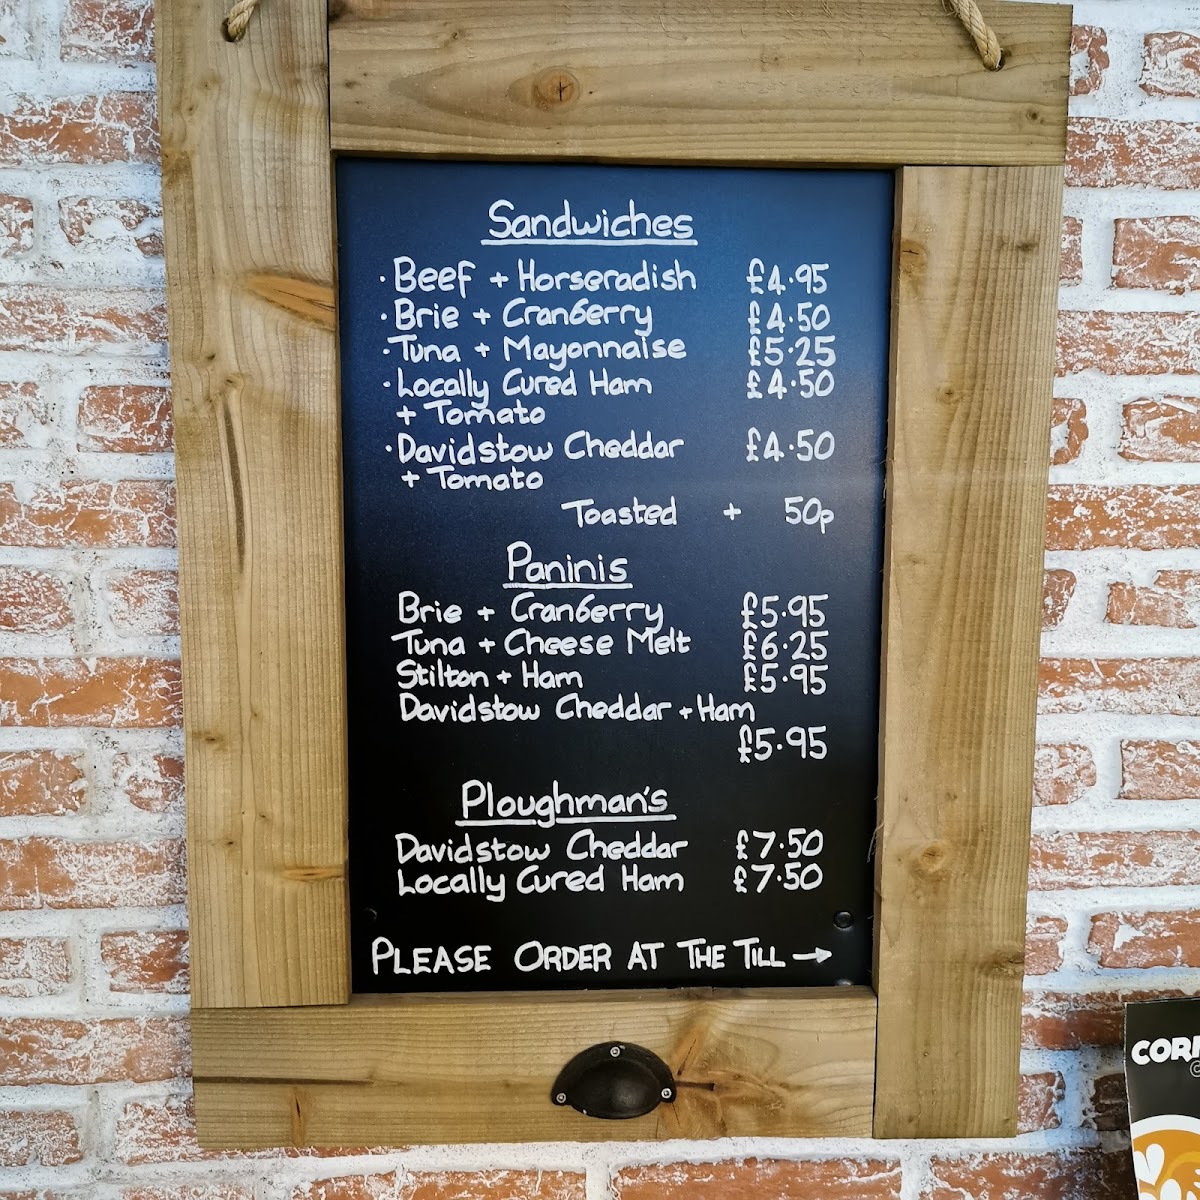 Sandwiches
· Beef + Horseradish £4.95
· Brie + Cranberry £4.50
· Tuna + Mayonnaise £5.25
· Locally Cured Ham £4.50
+ Tomato
· Davidstow Cheddar £4.50
+ Tomato
Toasted + 50p
Paninis
Brie + Cranberry £5.95
Tuna + Cheese Melt £6.25
Stilton + Ham £5.95
Davidstow Cheddar + Ham
£5.95
Ploughman's
Davidstow Cheddar £7.50
Locally Cured Ham £7.50
PLEASE ORDER AT THE TILL →